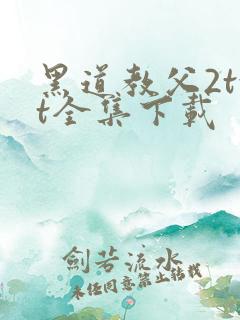 黑道教父2tx
t全集下载
剑若流水
未经同意禁止转载